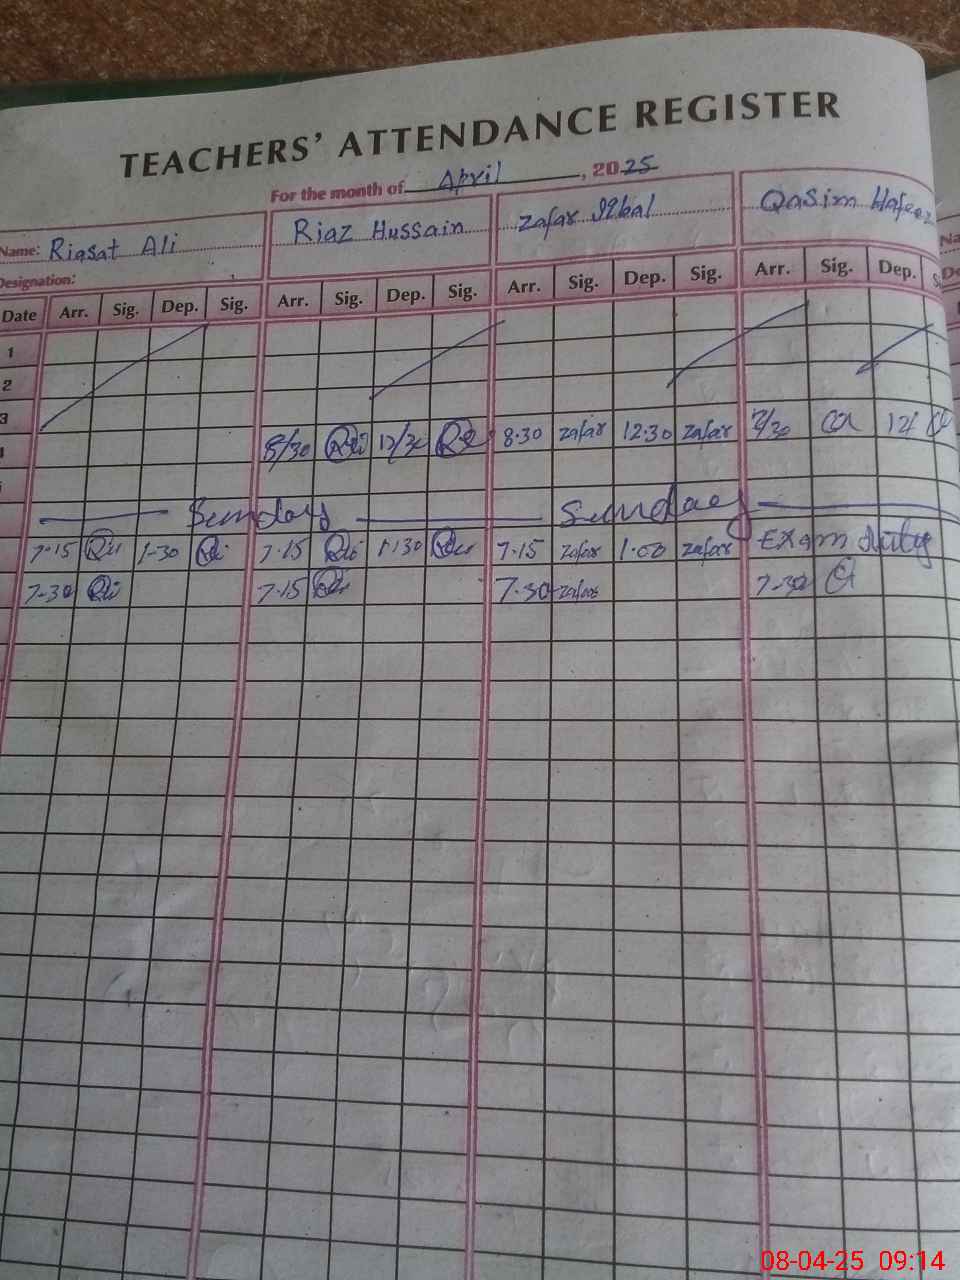 TEACHERS' ATTENDANCE REGISTER
For the month of April, 2025
Name: Riasat Ali Riaz Hussain Zafar Iqbal Qasim Hafeez Na
Designation: De
Date Arr. Sig. Dep. Sig. Arr. Sig. Dep. Sig. Arr. Sig. Dep. Sig. Arr. Sig. Dep. S
1
2
3
8/30 12/30 8:30 zafar 12:30 zafar 7/30 12/
Sunday Sunday
7·15 1-30 7·15 1·30 7·15 zafar 1·00 zafar Exam duty
7-30 7·15 7·30 zafar 7-30
08-04-25 09:14